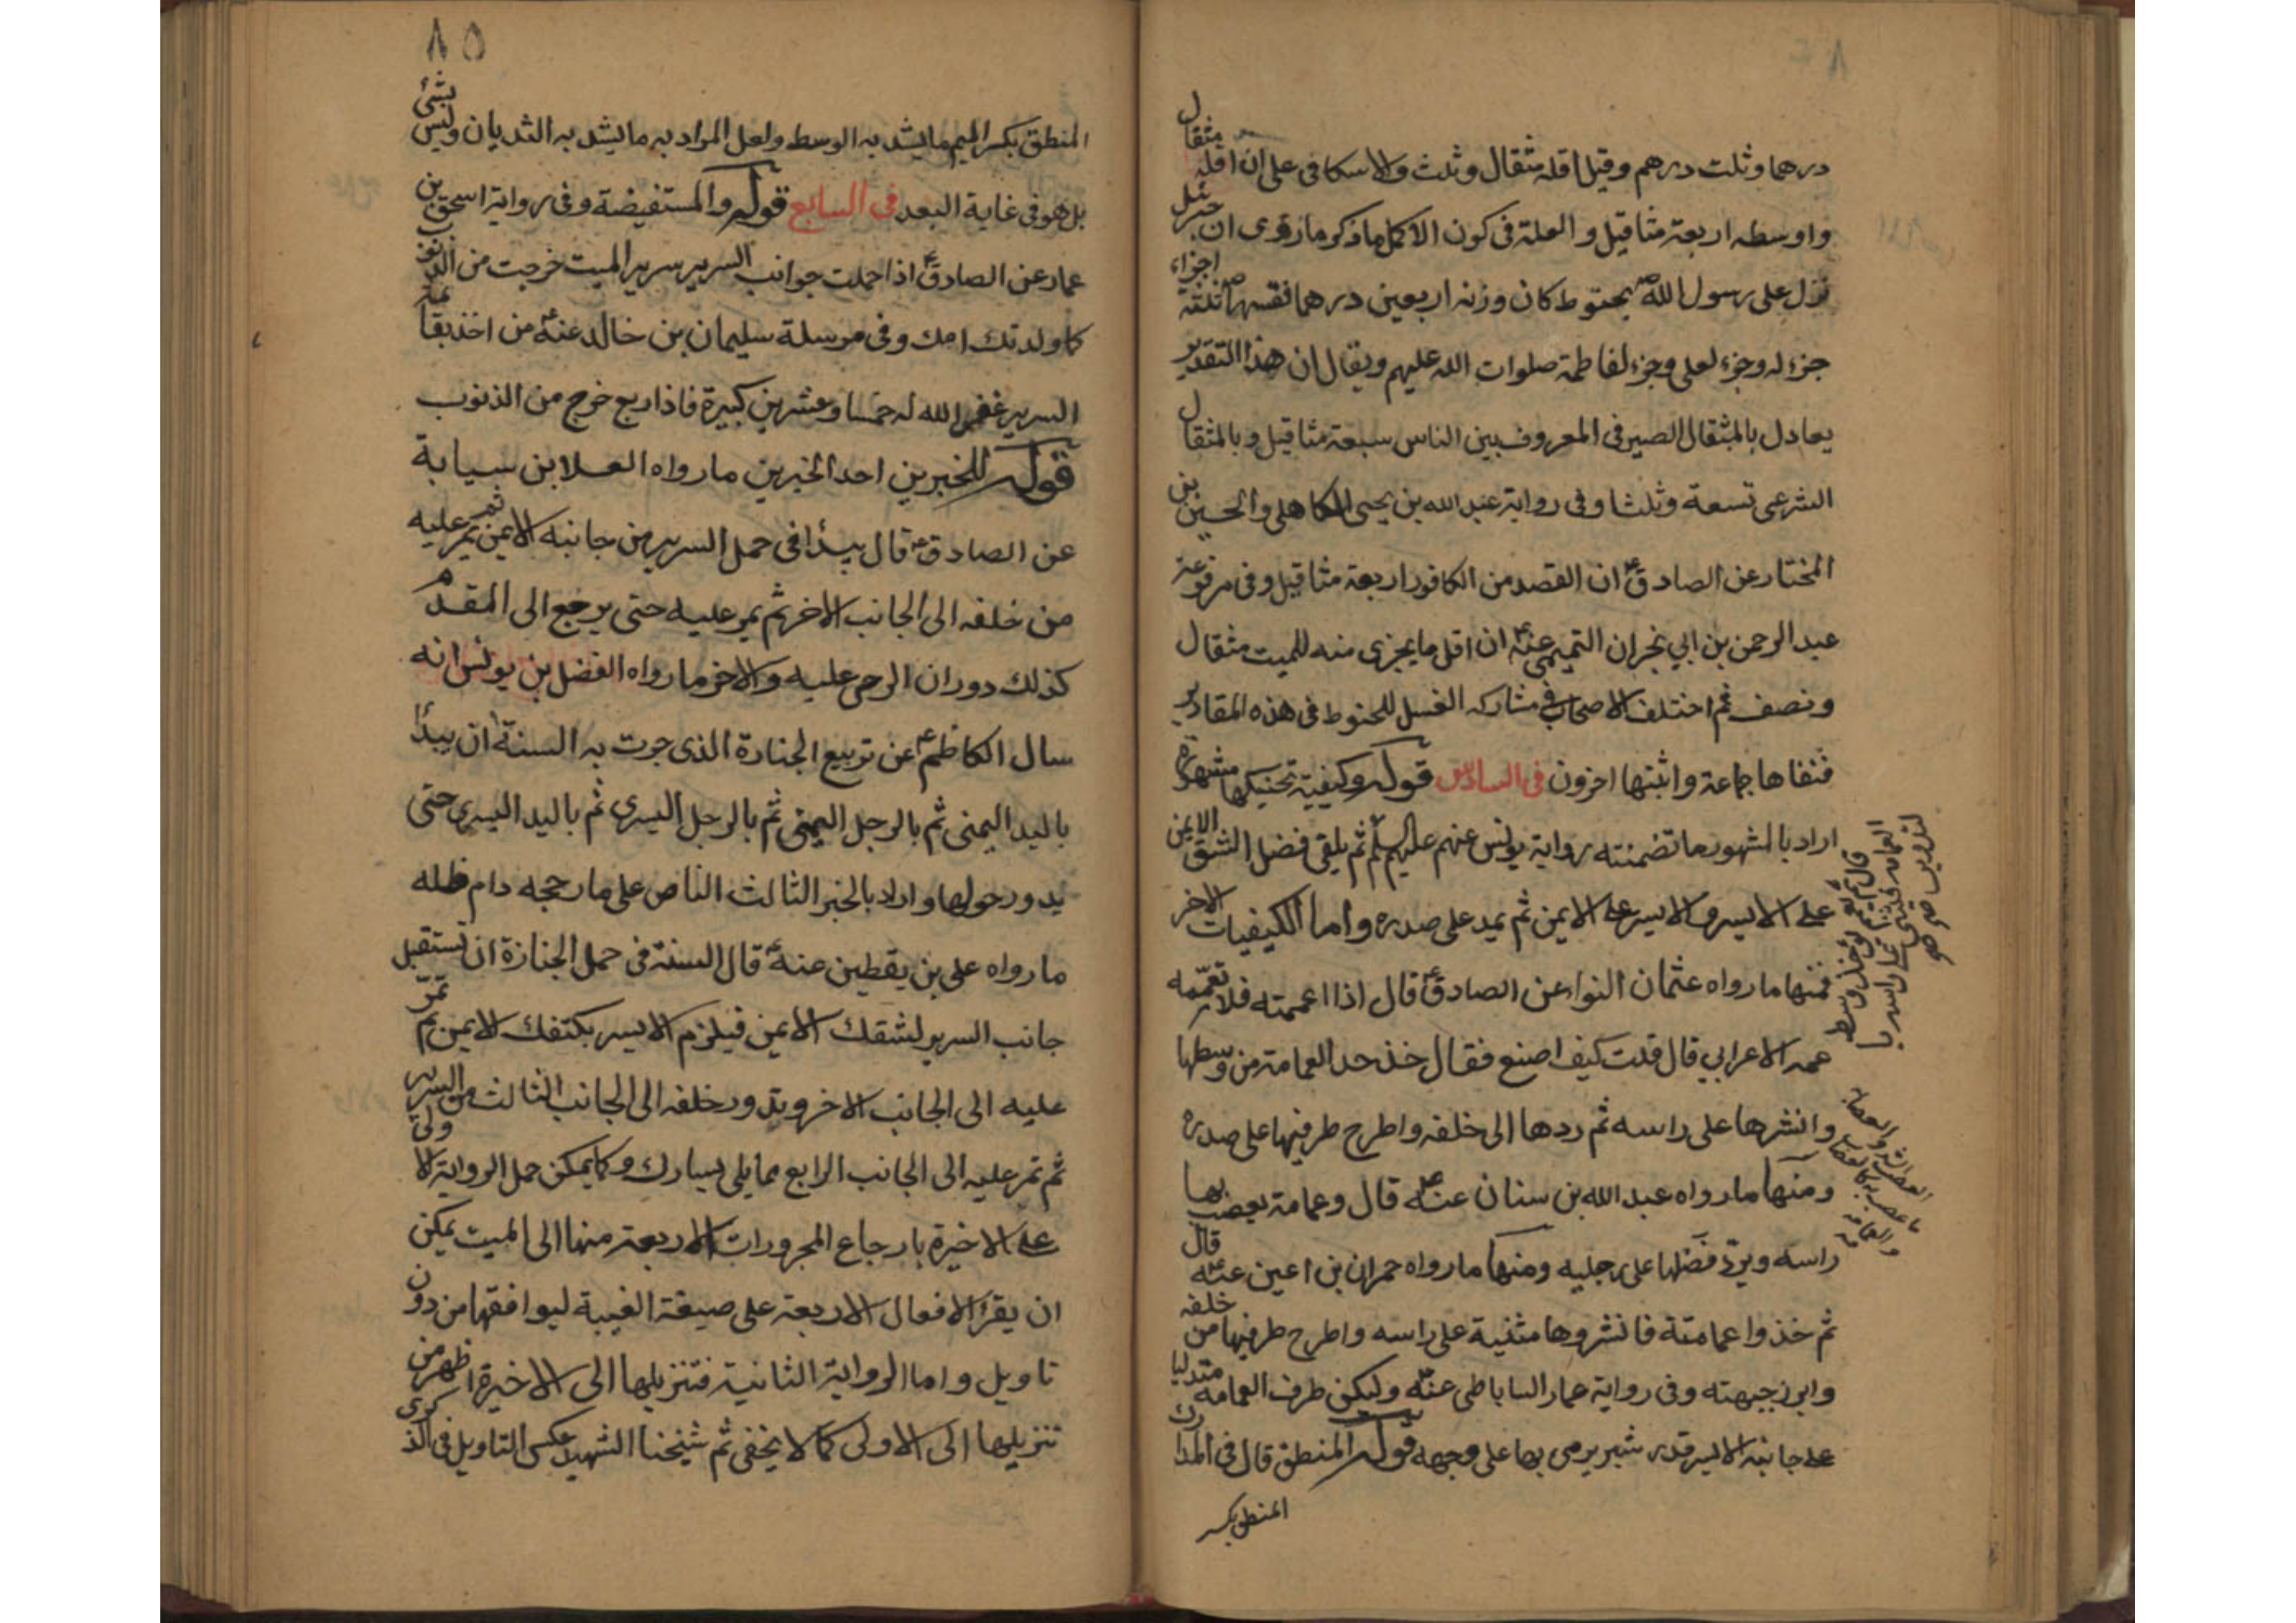 درهما وثلث درهم وقيل اقله مثقال وثلث والاسكافى على ان اقله مثقال
واوسطه اربعة مثاقيل والعلة فى كون الاكمل ما ذكر ما روى ان جبرئيل
نزل على رسول الله ص بحنوط كان وزنه اربعين درهما فقسمها ص ثلثة اجزاء
جزء له وجزء لعلى وجزء لفاطمة صلوات الله عليهم ويقال ان هذا التقدير
يعادل بالمثقال الصيرفى المعروف بين الناس سبعة مثاقيل وبالمثقال
الشرعى تسعة وثلثا وفى رواية عبد الله بن يحيى الكاهلى والحسين بن
المختار عن الصادق ع ان القصد من الكافور اربعة مثاقيل وفى مرفوعة
عبد الرحمن بن ابي نجران التميمى عنه ع ان اقل ما يجزى منه للميت مثقال
ونصف ثم اختلف الاصحاب فى مشاركه الغسل للحنوط فى هذه المقادير
فنفاها جماعة واثبتها اخرون فى السادس قوله وكيفية تحنيكها مشهورة
اراد بالمشهور ما تضمنته رواية يونس عنهم عليهم السلم ثم يلقى فضل الشق الايمن
على الايسر والايسر على الايمن ثم يمد على صدره واما الكيفيات الاخر
فمنها ما رواه عثمان النوا عن الصادق ع قال اذا اعممته فلا تعممه
عمه الاعرابي قال قلت كيف اصنع فقال خذ حد العمامة من وسطها
وانشرها على راسه ثم ردها الى خلفه واطرح طرفيها على صدره
ومنها ما رواه عبد الله بن سنان عنه ع قال وعمامة يعصب بها
راسه ويرد فضلها على رجليه ومنها ما رواه حمران بن اعين عنه ع قال
ثم خذوا عمامته فانشروها مثنية على راسه واطرح طرفيها من خلفه
وابرز جبهته وفى رواية عمار الساباطى عنه ع وليكن طرف العمامه متدليا
على جانبه الايسر قدر شبر يرمى بها على وجهه قوله المنطق قال فى المدارك
المنطق بكسر
٨٥
المنطق بكسر الميم ما يشد به الوسط ولعل المراد به ما يشد به الثديان وليس بشئ
بل هو فى غاية البعد فى السابع قوله والمستفيضة وفى رواية اسحق بن
عمار عن الصادق ع اذا حملت جوانب السرير سرير الميت خرجت من الذنوب
كما ولدتك امك وفى مرسلة سليمان بن خالد عنه ع من اخذ بقائمة
السرير غفر الله له خمسا وعشرين كبيرة فاذا ربع خرج من الذنوب
قوله للخبرين احد الخبرين ما رواه العلا بن سيابة
عن الصادق ع قال يبدأ فى حمل السرير من جانبه الايمن ثم يمر عليه
من خلفه الى الجانب الاخر ثم يمر عليه حتى يرجع الى المقدم
كذلك دوران الرحى عليه والاخر ما رواه الفضل بن يونس انه
سال الكاظم ع عن تربيع الجنازة الذى جرت به السنة ان يبدأ
باليد اليمنى ثم بالرجل اليمنى ثم بالرجل اليسرى ثم باليد اليسرى حتى
يدور حولها واراد بالخبر الثالث الناص على ما رجحه دام ظله
ما رواه على بن يقطين عنه ع قال السنة فى حمل الجنازة ان تستقبل
جانب السرير لشقك الايمن فيلزم الايسر بكتفك الايمن ثم تمر
عليه الى الجانب الاخر وتدور خلفه الى الجانب الثالث من السرير
ثم تمر عليه الى الجانب الرابع مما يلى يسارك وكما يمكن حمل الرواية الاولى
على الاخيرة بارجاع المجرورات الاربعة منها الى الميت يمكن
ان يقرء الافعال الاربعة على صيغة الغيبة ليوافقها من دون
تاويل واما الرواية الثانية فتنزيلها الى الاخيرة اظهر من
تنزيلها الى الاولى كما لا يخفى ثم شيخنا الشهيد عكس التاويل فى الذكرى